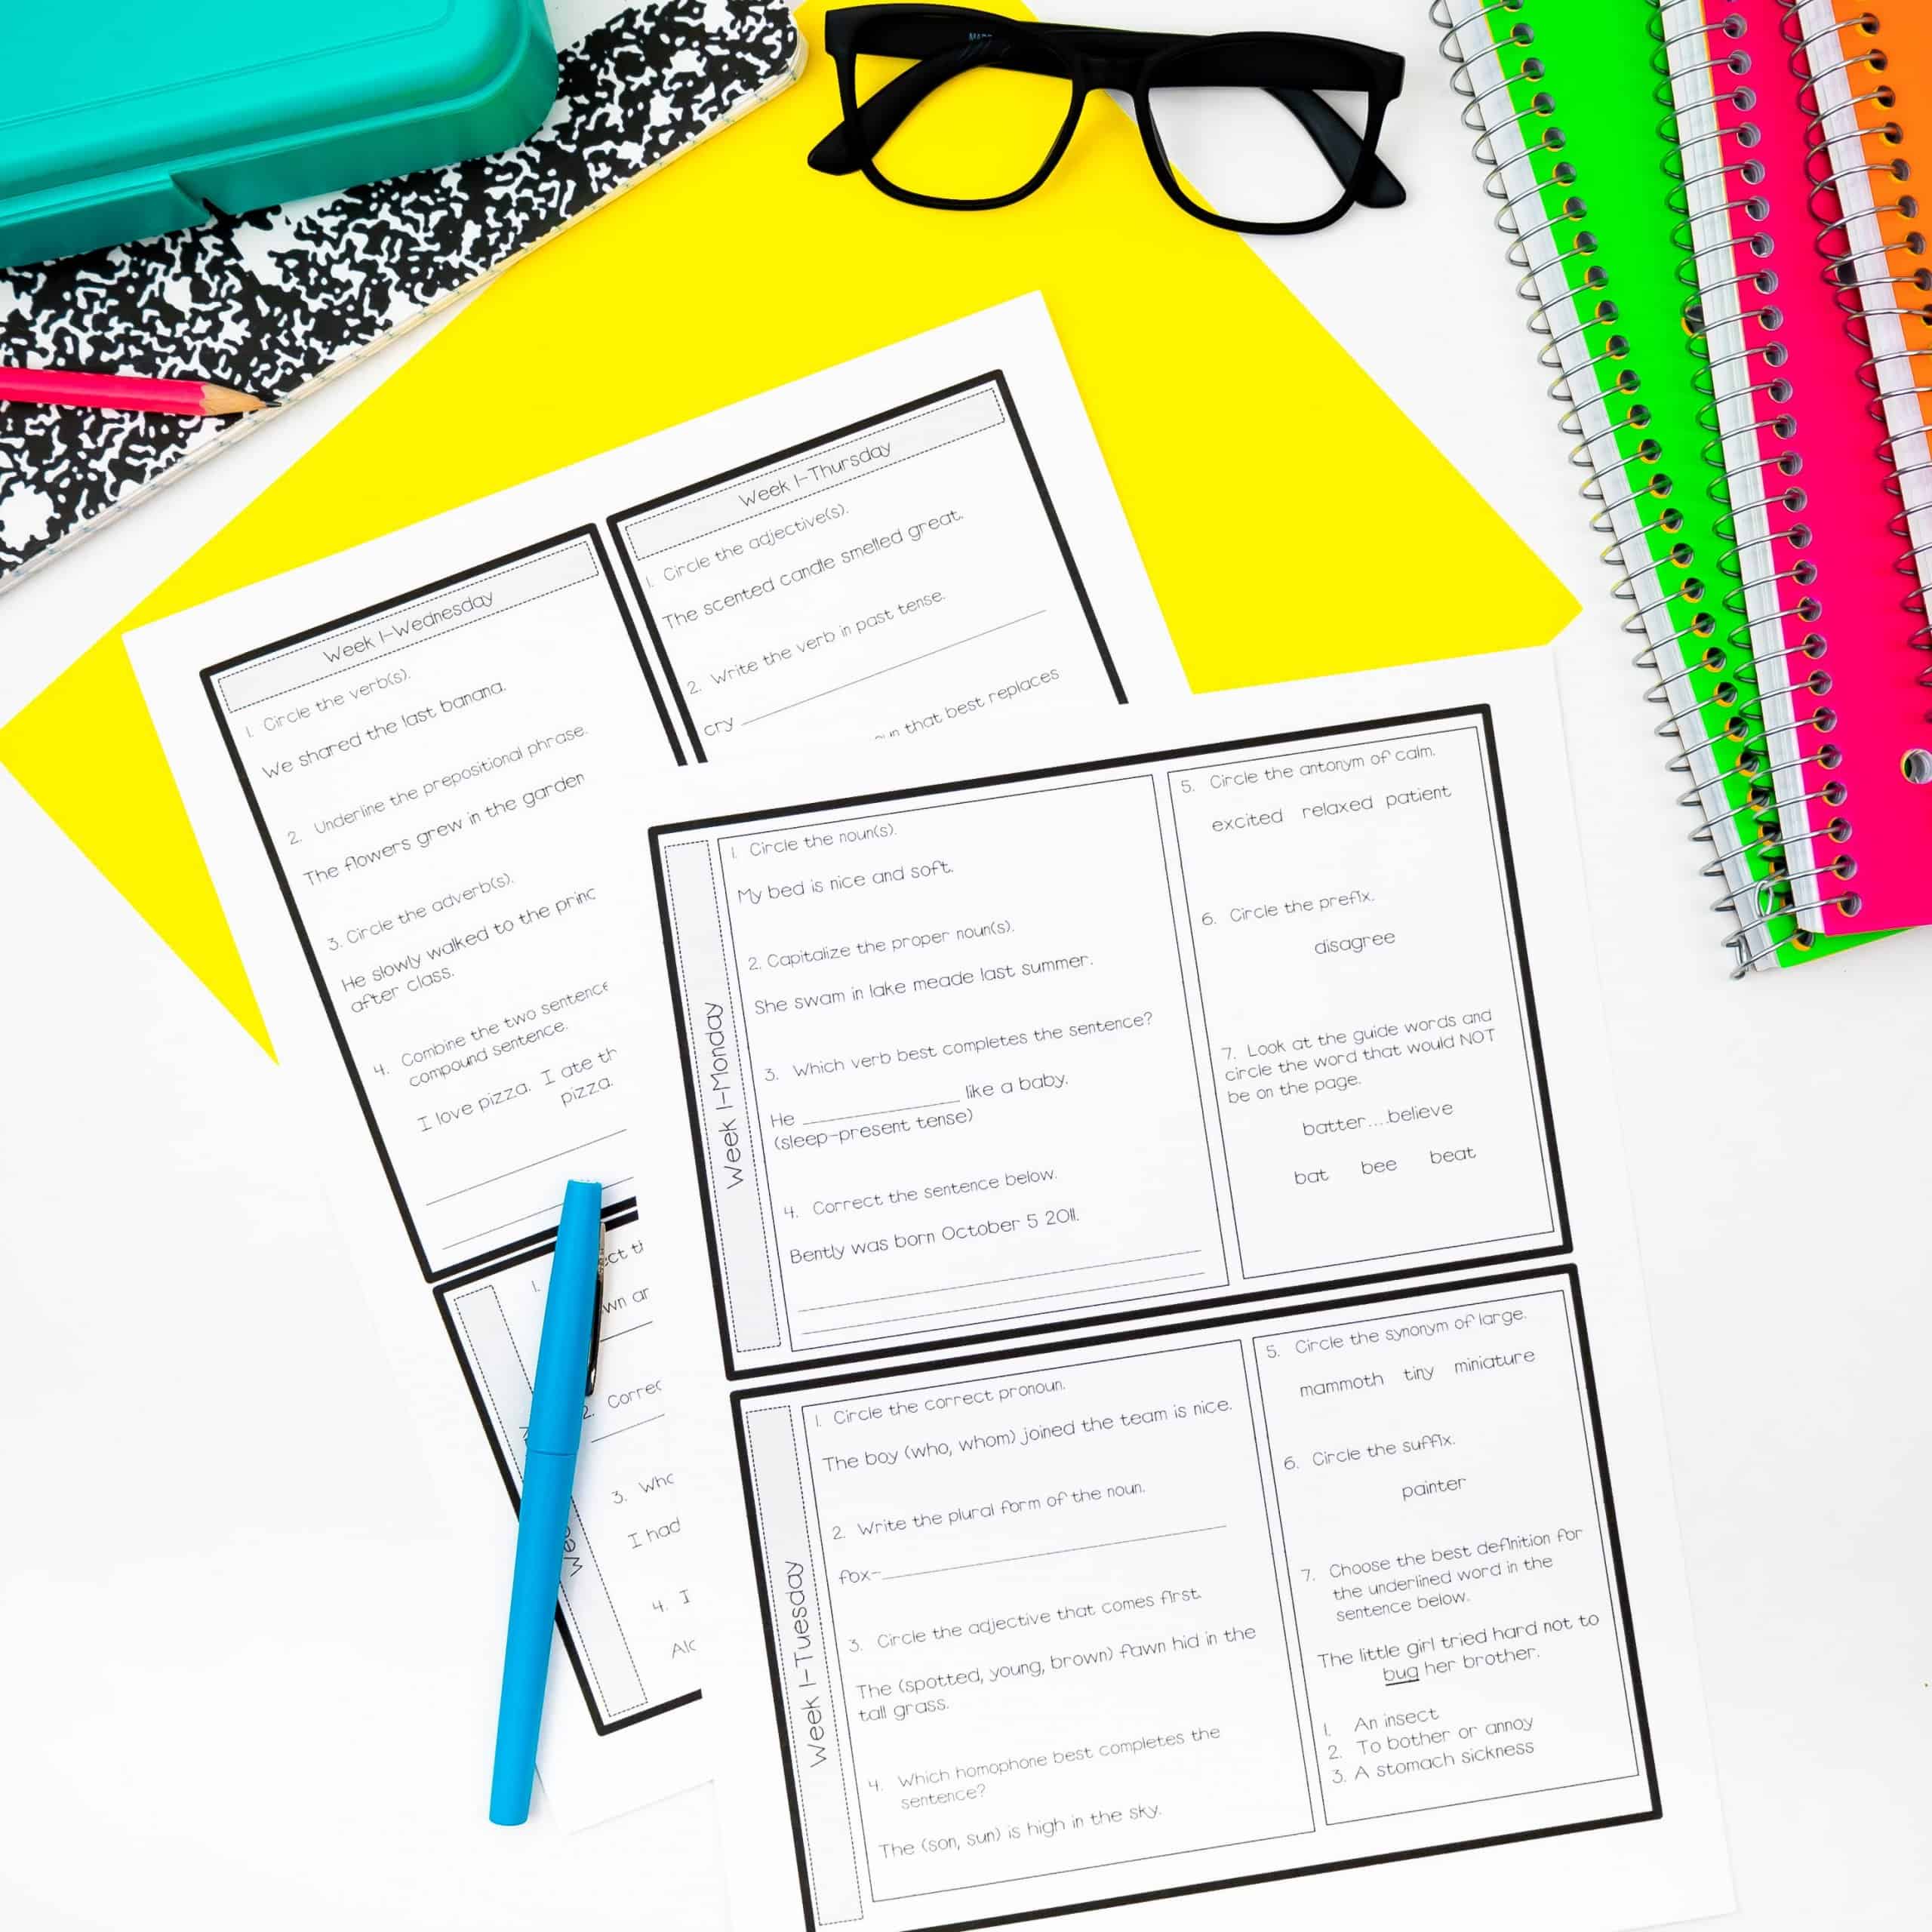 Week 1-Wednesday
1. Circle the verb(s).
We shared the last banana.
2. Underline the prepositional phrase.
The flowers grew in the garden
3. Circle the adverb(s).
He slowly walked to the
after class.
4. Combine the two
compound sentence.
I love pizza. I ate
pizza.
Week 1-Thursday
1. Circle the adjective(s).
The scented candle smelled great.
2. Write the verb in past tense.
cry
that best replaces
1.
2.
3.
I had
4. I
Week 1-Monday
1. Circle the noun(s).
My bed is nice and soft.
2. Capitalize the proper noun(s).
She swam in lake meade last summer.
3. Which verb best completes the sentence?
He ____________ like a baby.
(sleep-present tense)
4. Correct the sentence below.
Bently was born October 5 2011.
5. Circle the antonym of calm.
excited relaxed patient
6. Circle the prefix.
disagree
7. Look at the guide words and
circle the word that would NOT
be on the page.
batter....believe
bat bee beat
Week 1-Tuesday
1. Circle the correct pronoun.
The boy (who, whom) joined the team is nice.
2. Write the plural form of the noun.
fox-____________
3. Circle the adjective that comes first.
The (spotted, young, brown) fawn hid in the
tall grass.
4. Which homophone best completes the
sentence?
The (son, sun) is high in the sky.
5. Circle the synonym of large.
mammoth tiny miniature
6. Circle the suffix.
painter
7. Choose the best definition for
the underlined word in the
sentence below.
The little girl tried hard not to
bug her brother.
1. An insect
2. To bother or annoy
3. A stomach sickness